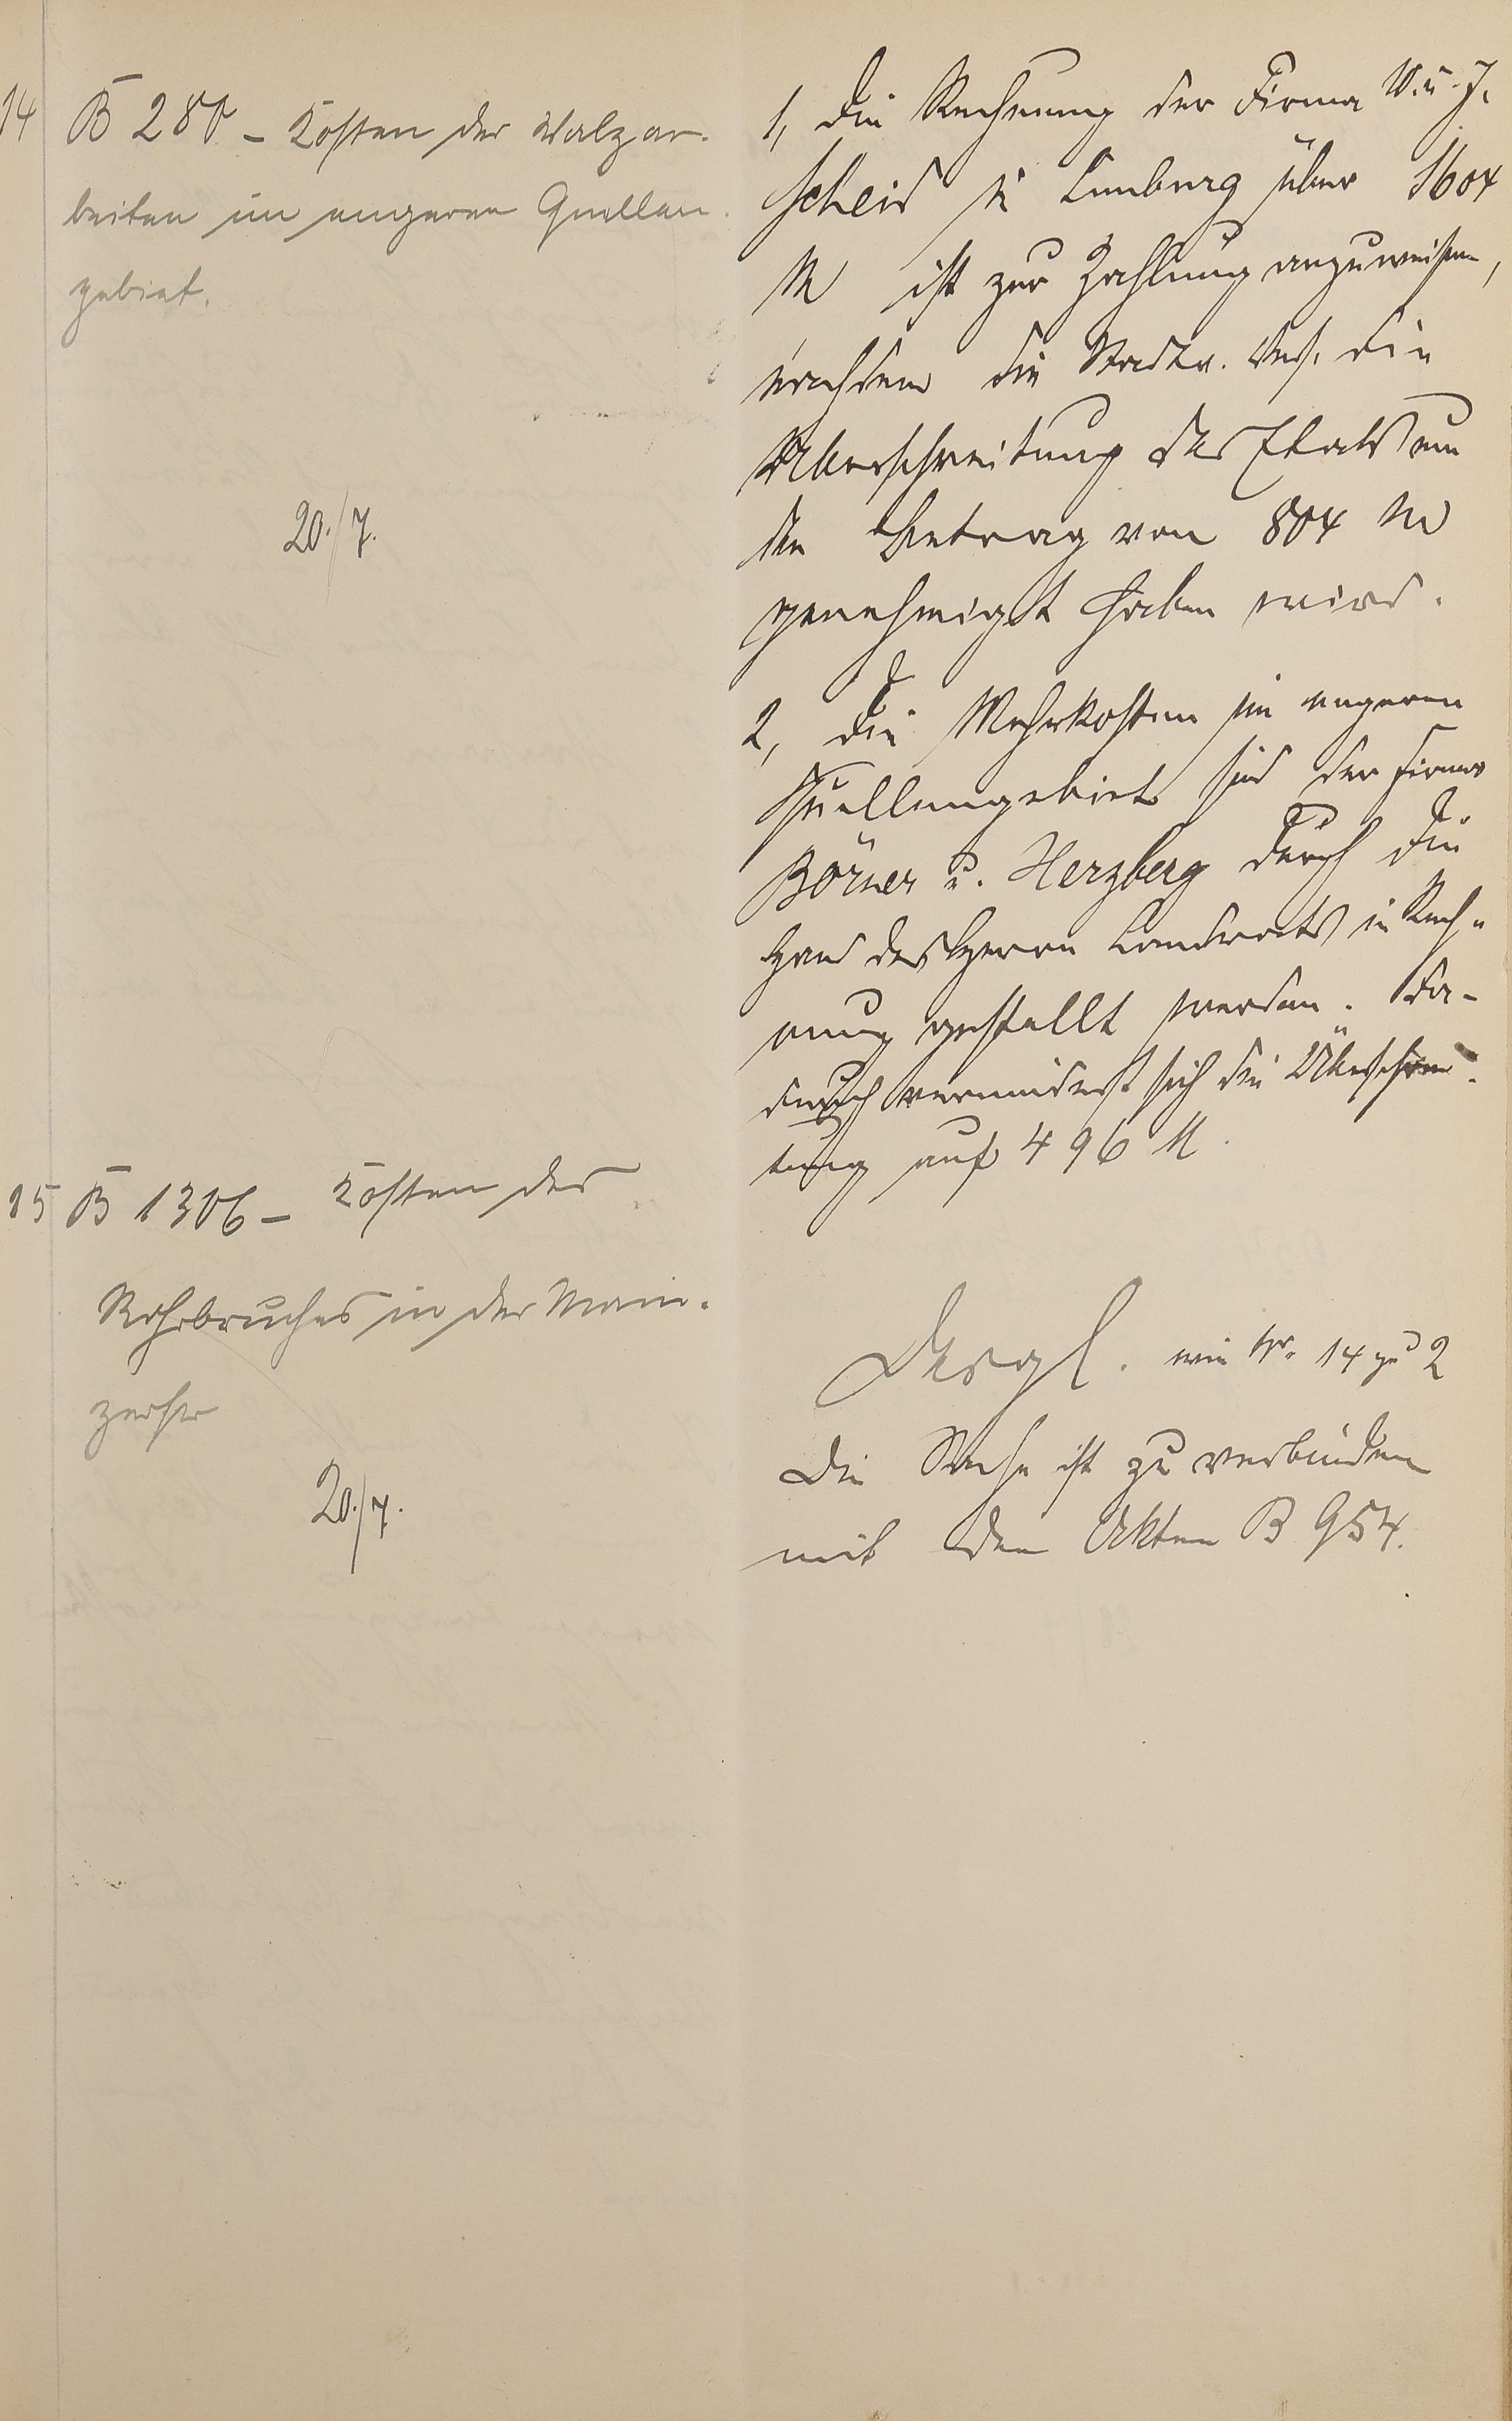 14 B 280 - Kosten der Walzar-
beiten im engeren Quellen-
gebiet.
20./7.
1, Die Rechnung der Firma W. u. J.
Scheid in Limburg über 1604
M ist zur Zahlung anzuweisen,
nachdem die Stadtv. Vers. die
Überschreitung des Etats um
den Betrag von 804 M
genehmigt haben wird.
2, Die Mehrkosten im engeren
Quellengebiet sind der Firma
Börner u. Herzberg durch die
Hand des Herrn Landrats in Rech-
nung gestellt werden. Da-
durch vermindert sich die Überschrei-
tung auf 496 M.
15 B 1306 - Kosten des
Rohrbruches in der Main-
zerstr
20./7.
Desgl. wie Nr. 14 zu 2
Die Sache ist zu verbinden
mit den Akten B 954.